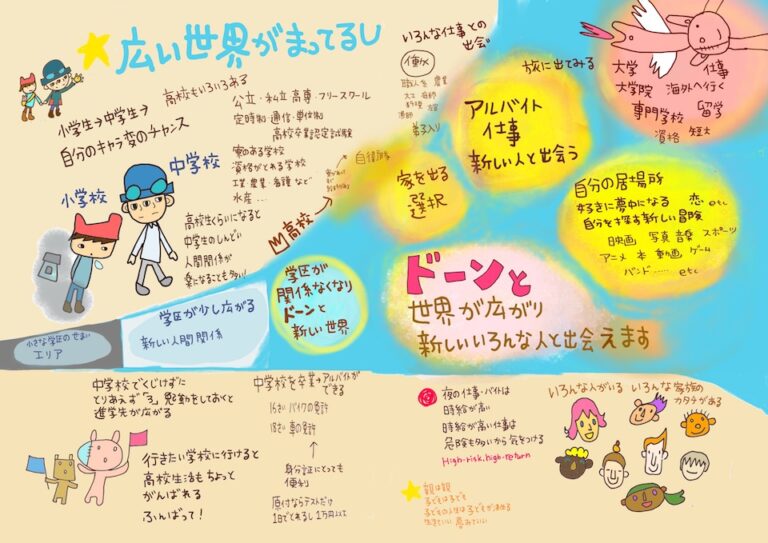 広い世界がまってるし
小学生→中学生→
自分のキャラ変のチャンス
高校もいろいろある
公立・私立 高専・フリースクール
定時制・通信・単位制
高校卒業認定試験
寮のある学校
資格がとれる学校
工業・農業・看護 など
水産 …
小学校
中学校
高校生くらいになると
中学生のしんどい
人間関係が
楽になることも多い!
高校
いろんな仕事との
出会い
働く
弟子入り
家を出る
選択
アルバイト
仕事
新しい人と出会う
旅に出てみる
大学
大学院
専門学校
資格
仕事
海外へ行く
留学
短大
自分の居場所
好きに夢中になる
恋 etc
自分を探す新しい冒険
映画 写真 音楽 スポーツ
アニメ 本 動画 ゲーム
バンド …… etc
小さな学区のせまい
エリア
学区が少し広がる
新しい人間関係
学区が
関係なくなり
ドーンと
新しい世界
ドーンと
世界が広がり
新しいいろんな人と出会えます
中学校でくじけずに
とりあえず「3」勉強をしておくと
進学先が広がる
行きたい学校に行けると
高校生活もちょっと
がんばれる
ふんばって!
中学校を卒業→アルバイトが
できる
16さい バイクの免許
18さい 車の免許
身分証にとっても
便利
原付ならテストだけ
1日でとれるし 1万円以下
夜の仕事・バイトは
時給が高い
時給が高い仕事は
危険も多いから気をつける
High-risk, high-return
親は親
子どもは子ども
子どもの人生は子どもが決める
いろんな人がいる
いろんな家族の
カタチがある